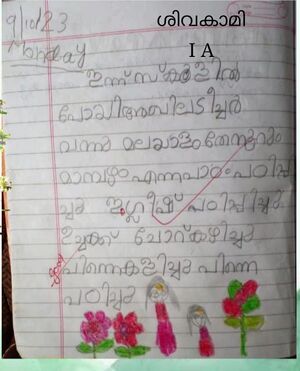 9/10/23
Monday
ശിവകാമി
I A
ഇന്ന് സ്കൂളിൽ
പോയി അഖിലടീച്ചർ
വന്നു മലയാളം തേനൂറും
മാമ്പഴം എന്ന പാഠം പഠിപ്പി
ച്ചു ഇംഗ്ലീഷ് പഠിപ്പിച്ചു
ഉച്ചക്ക് ചോറ് കഴിച്ചു
പിന്നെ കളിച്ചു പിന്നെ
പഠിച്ചു